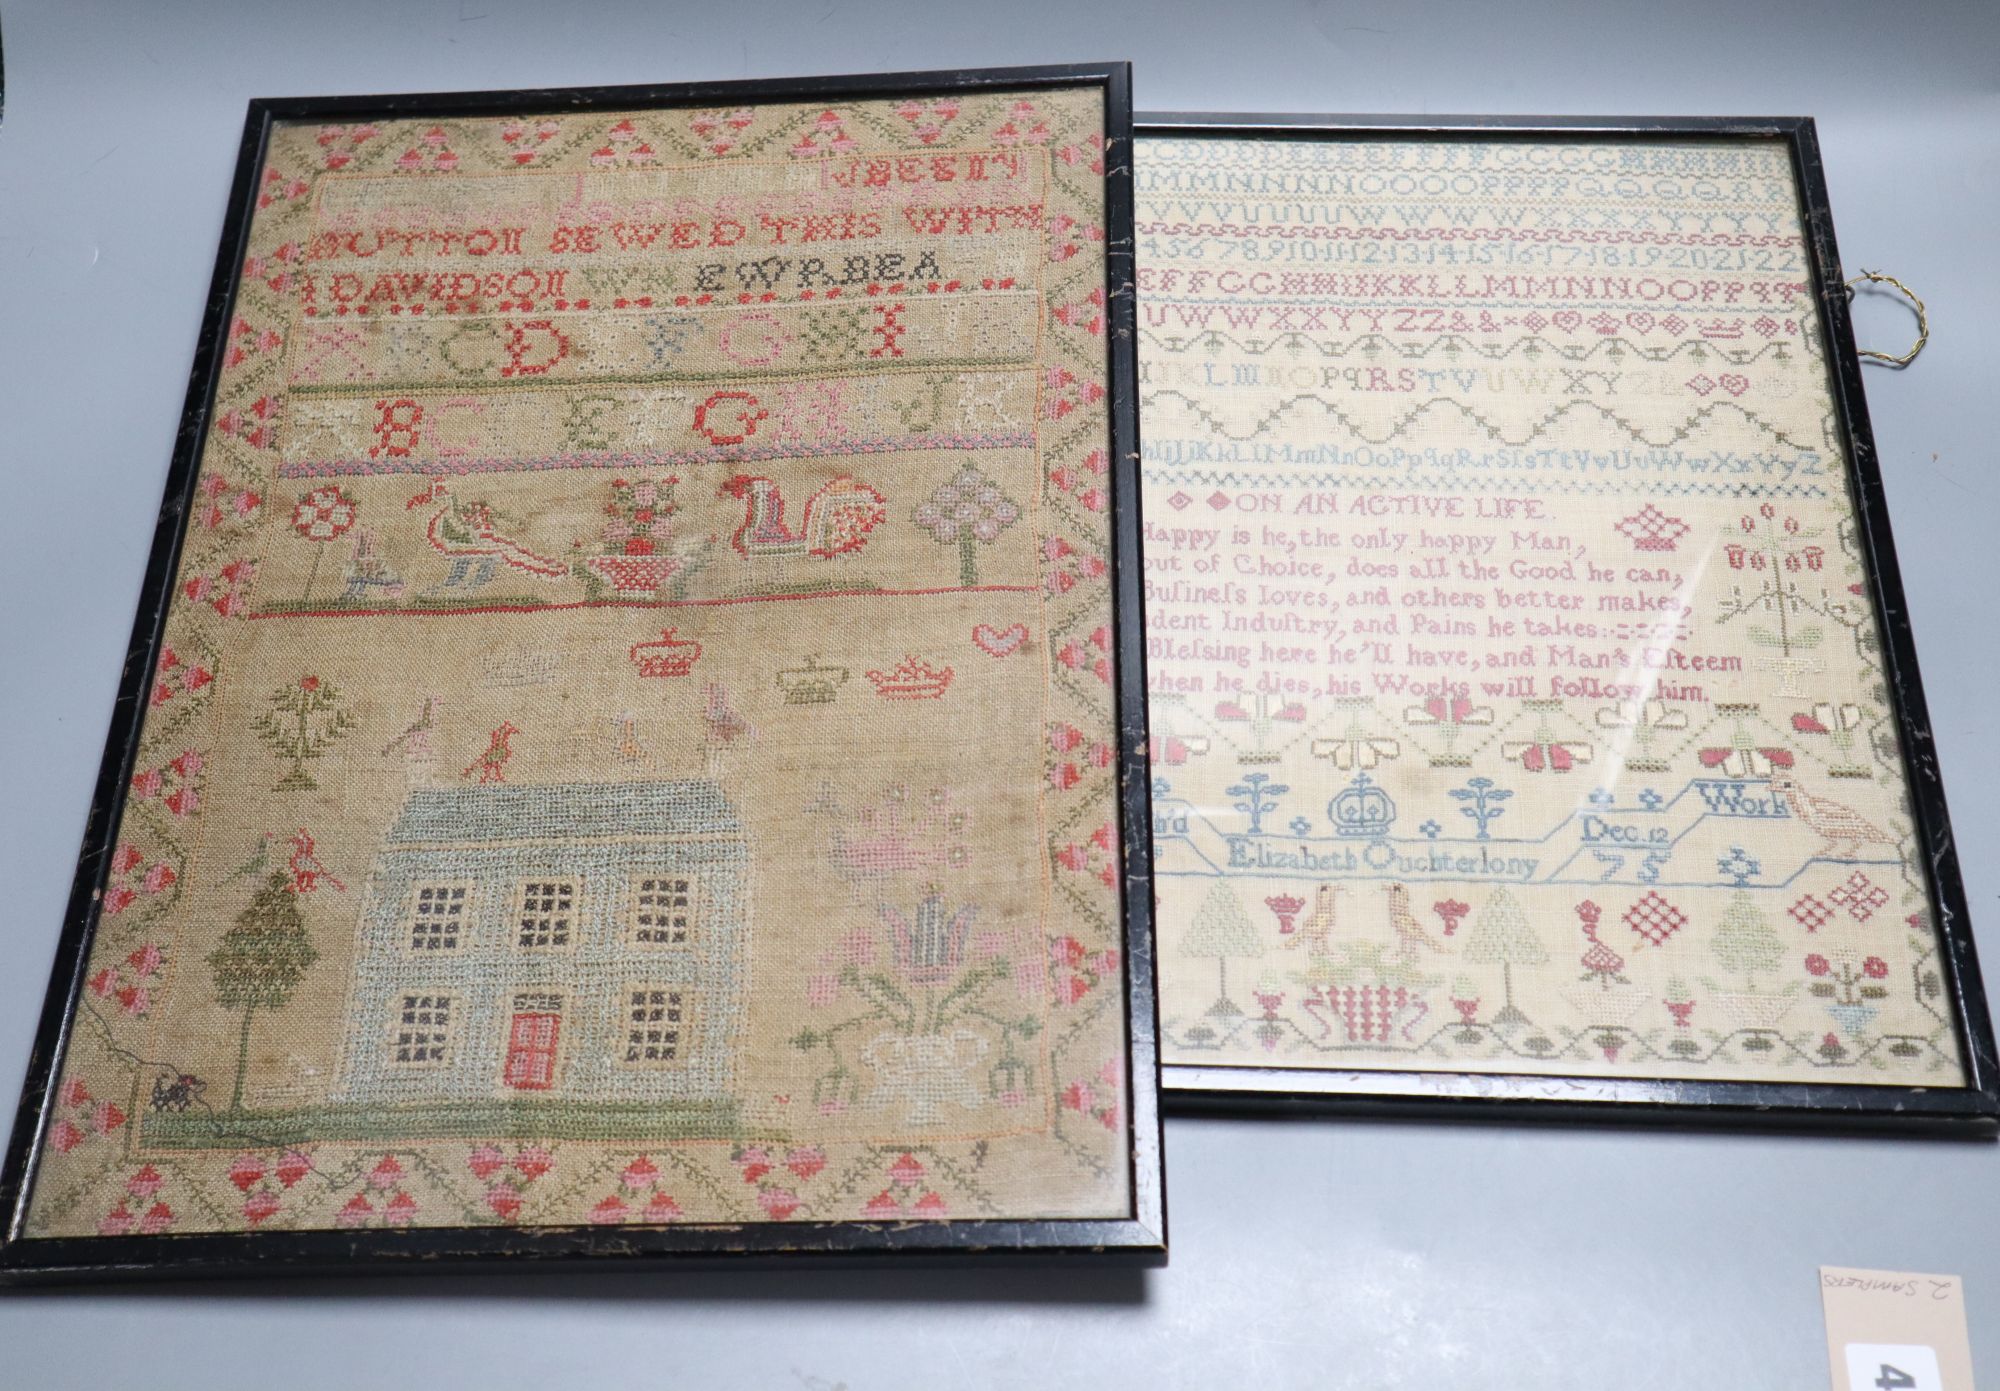 HUTTON SEWED THIS WITH
I DAVIDSON WH EWRBEA
A B C D E F G H I
A B C D E F G H J K
CDDDDEEEEFFFFGGGGHHHH
MMMNNNNNOOOOPPPPQQQQRR
VVVUUUUWWWWXXXXYYYY
4·5·6·7·8·9·10·11·12·13·14·15·16·17·18·19·20·21·22
EFFGGHHIIKKLLMMNNOOPPqq
UWWXXYYZZ&&
KLMNOPqRSTVUWXYZ
hIiJjKkLlMmNnOoPpqqRrSſsTtVvUuWwXxYyZ
ON AN ACTIVE LIFE.
Happy is he, the only happy Man,
out of Choice, does all the Good he can,
Buſineſs loves, and others better makes,
dent Induſtry, and Pains he takes
Bleſsing here he'll have, and Man's Eſteem
when he dies, his Works will follow him.
Work
h'd
Dec. 12
Elizabeth Ouchterlony
75
2 SAMPLERS
4